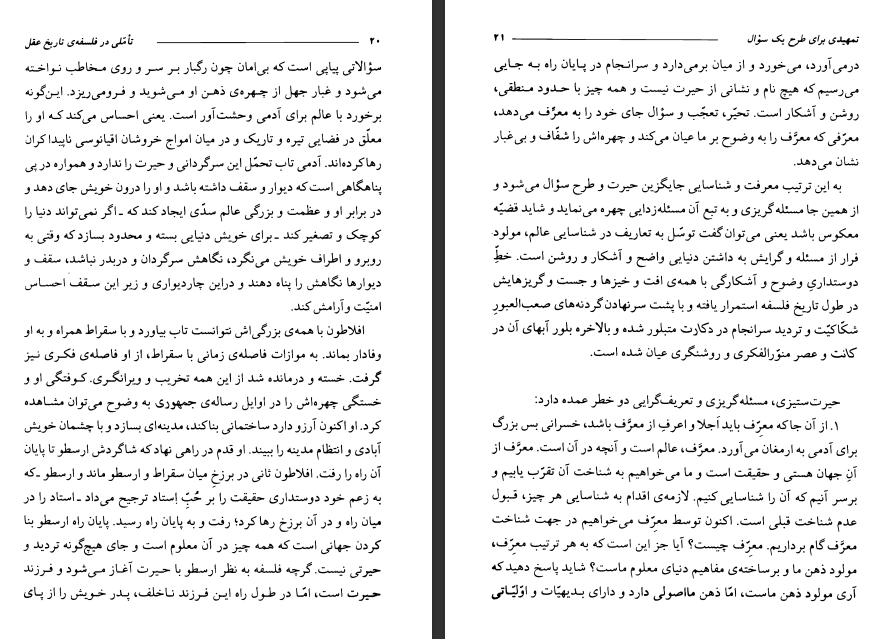 ۲۰ تأمّلی در فلسفه‌ی تاریخ عقل
سؤالاتی پیاپی است که بی‌امان چون رگبار بر سر و روی مخاطب نواخته
می‌شود و غبار جهل از چهره‌ی ذهن او می‌شوید و فرومی‌ریزد. این‌گونه
برخورد با عالم برای آدمی وحشت‌آور است. یعنی احساس می‌کند که او را
معلّق در فضایی تیره و تاریک و در میان امواج خروشان اقیانوسی ناپیداکران
رها کرده‌اند. آدمی تاب تحمّل این سرگردانی و حیرت را ندارد و همواره در پی
پناهگاهی است که دیوار و سقف داشته باشد و او را درون خویش جای دهد و
در برابر او و عظمت و بزرگی عالم سدّی ایجاد کند که ـ اگر نمی‌تواند دنیا را
کوچک و تصغیر کند ـ برای خویش دنیایی بسته و محدود بسازد که وقتی به
روبرو و اطراف خویش می‌نگرد، نگاهش سرگردان و دربدر نباشد، سقف و
دیوارها نگاهش را پناه دهند و دراین چاردیواری و زیر این سقف احساس
امنیّت و آرامش کند.
افلاطون با همه‌ی بزرگی‌اش نتوانست تاب بیاورد و با سقراط همراه و به او
وفادار بماند. به موازات فاصله‌ی زمانی با سقراط، از او فاصله‌ی فکری نیز
گرفت. خسته و درمانده شد از این همه تخریب و ویرانگری. کوفتگی او و
خستگی چهره‌اش را در اوایل رساله‌ی جمهوری به وضوح می‌توان مشاهده
کرد. او اکنون آرزو دارد ساختمانی بناکند، مدینه‌ای بسازد و با چشمان خویش
آبادی و انتظام مدینه را ببیند. او قدم در راهی نهاد که شاگردش ارسطو تا پایان
آن راه را رفت. افلاطون ثانی در برزخ میان سقراط و ارسطو ماند و ارسطو ـ که
به زعم خود دوستداری حقیقت را بر حُبِّ اِستاد ترجیح می‌داد ـ استاد را در
میان راه و در آن برزخ رها کرد؛ رفت و به پایان راه رسید. پایان راه ارسطو بنا
کردن جهانی است که همه چیز در آن معلوم است و جای هیچ‌گونه تردید و
حیرتی نیست. گرچه فلسفه به نظر ارسطو با حیرت آغاز می‌شود و فرزند
حیرت است، امّا در طول راه این فرزند ناخلف، پدر خویش را از پای
تمهیدی برای طرح یک سؤال ۲۱
درمی‌آورد، می‌خورد و از میان برمی‌دارد و سرانجام در پایان راه به جایی
می‌رسیم که هیچ نام و نشانی از حیرت نیست و همه چیز با حدود منطقی،
روشن و آشکار است. تحیّر، تعجّب و سؤال جای خود را به معرِّف می‌دهد،
معرّفی که معرَّف را به وضوح بر ما عیان می‌کند و چهره‌اش را شفّاف و بی‌غبار
نشان می‌دهد.
به این ترتیب معرفت و شناسایی جایگزین حیرت و طرح سؤال می‌شود و
از همین جا مسئله‌گریزی و به تبع آن مسئله‌زدایی چهره می‌نماید و شاید قضیّه
معکوس باشد یعنی می‌توان گفت توسّل به تعاریف در شناسایی عالم، مولود
فرار از مسئله و گرایش به داشتن دنیایی واضح و آشکار و روشن است. خطِّ
دوستداریِ وضوح و آشکارگی با همه‌ی افت و خیزها و جست و گریزهایش
در طول تاریخ فلسفه استمرار یافته و با پشت سرنهادن گردنه‌های صعب‌العبورِ
شکّاکیّت و تردید سرانجام در دکارت متبلور شده و بالاخره بلور آبهای آن در
کانت و عصر منوّرالفکری و روشنگری عیان شده است.
حیرت‌ستیزی، مسئله‌گریزی و تعریف‌گرایی دو خطر عمده دارد:
۱. از آن جا که معرِّف باید اَجلا و اعرفِ از معرَّف باشد، خسرانی بس بزرگ
برای آدمی به ارمغان می‌آورد. معرَّف، عالم است و آنچه در آن است. معرَّف از
آنِ جهان هستی و حقیقت است و ما می‌خواهیم به شناخت آن تقرّب یابیم و
برسر آنیم که آن را شناسایی کنیم. لازمه‌ی اقدام به شناسایی هر چیز، قبول
عدم شناخت قبلی است. اکنون توسط معرِّف می‌خواهیم در جهت شناخت
معرَّف گام برداریم. معرِّف چیست؟ آیا جز این است که به هر ترتیب معرِّف،
مولود ذهن ما و برساخته‌ی مفاهیم دنیای معلوم ماست؟ شاید پاسخ دهید که
آری مولود ذهن ماست، امّا ذهن مااصولی دارد و دارای بدیهیّات و اوّلیّاتی